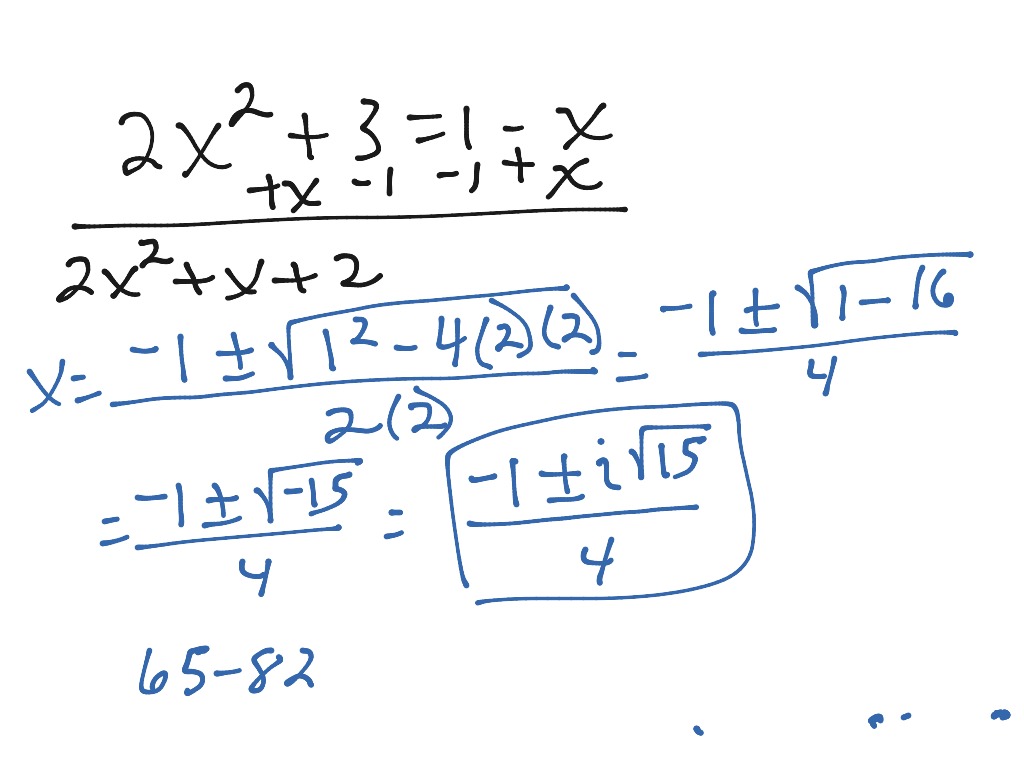 2x² + 3 = 1 - x
+x -1 -1 + x
2x² + x + 2
x = (-1 ± √(1² - 4(2)(2))) / 2(2) = (-1 ± √(1 - 16)) / 4
= (-1 ± √(-15)) / 4 = (-1 ± i√15) / 4
65-82